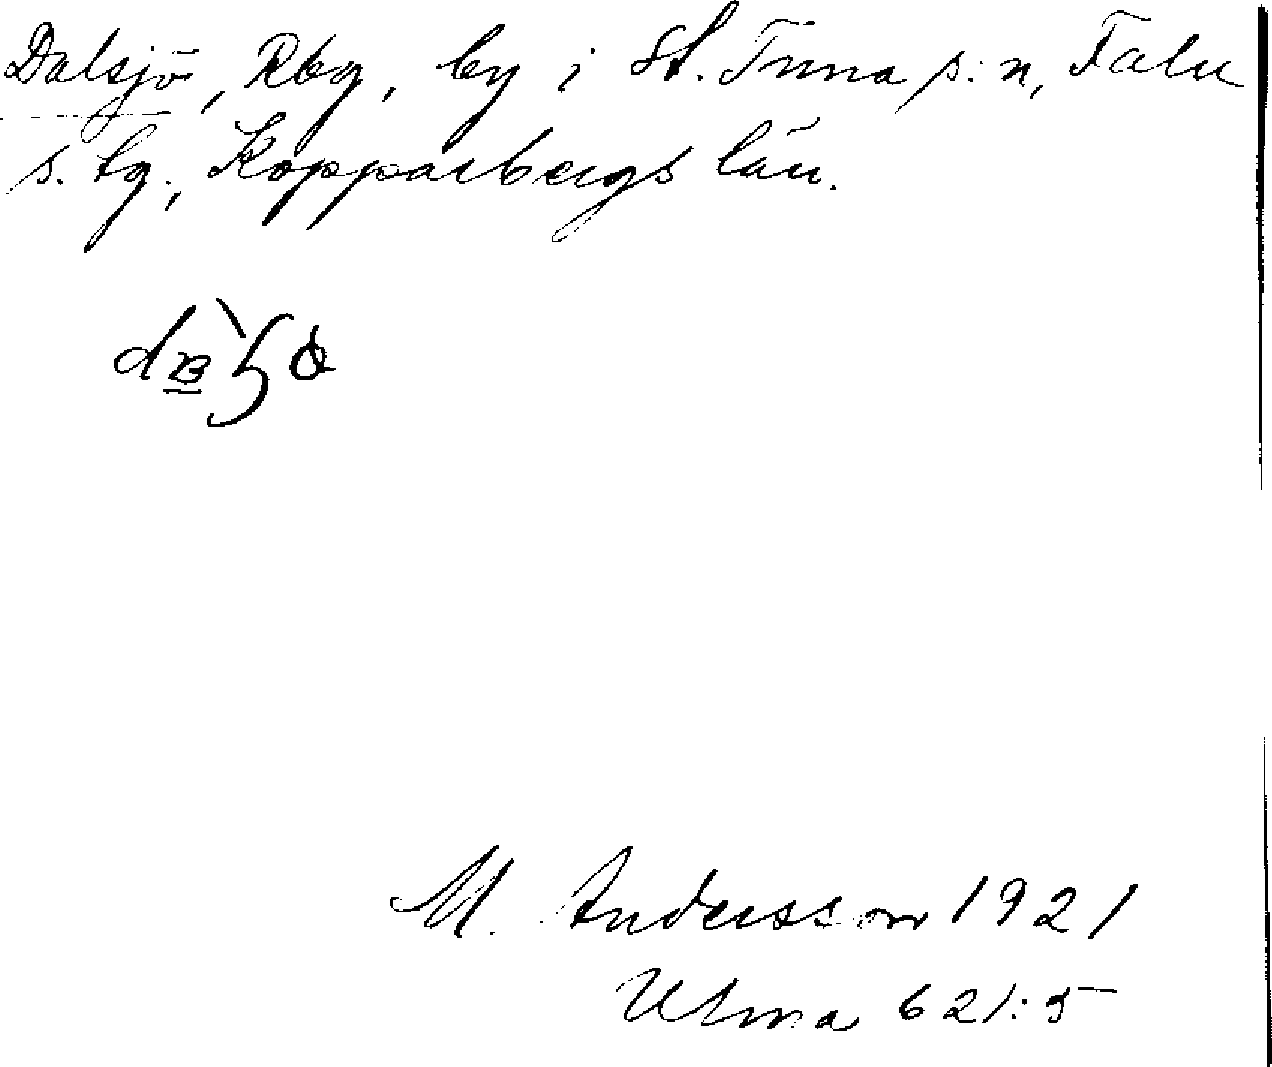 Dalsjö, Rbg, by i St. Tuna s:n, Falu
s. tg., Kopparbergs län.
M. Andersson 1921
Ulma 621:5